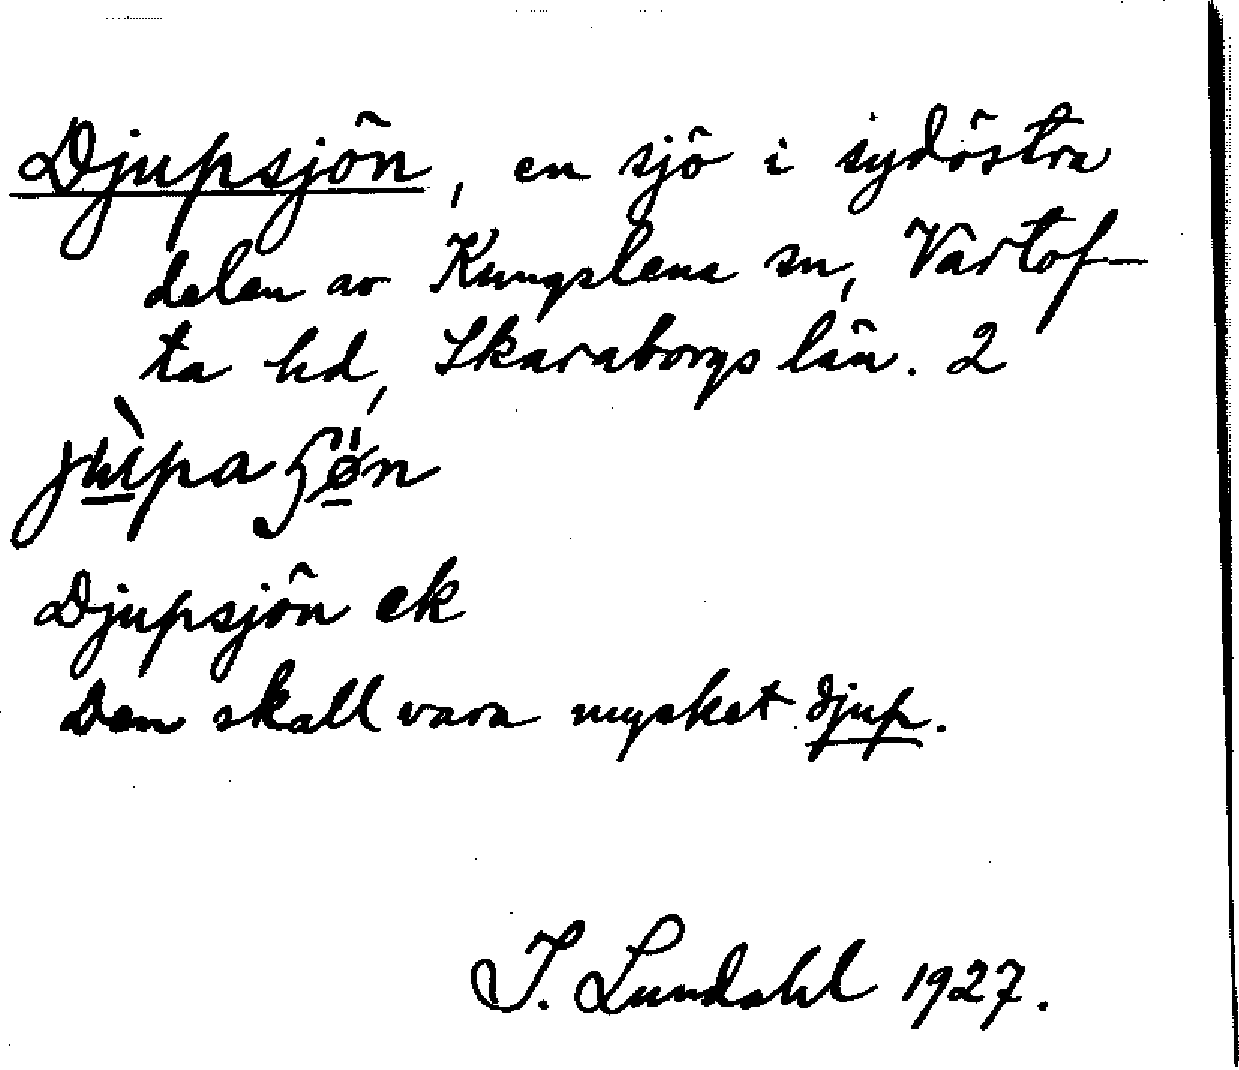 Djupsjön, en sjö i sydöstra
delen av Kungslena sn, Vartof-
ta hd, Skaraborgs län. 2
Djupsjön ek
Den skall vara mycket djup.
I. Lundahl 1927.